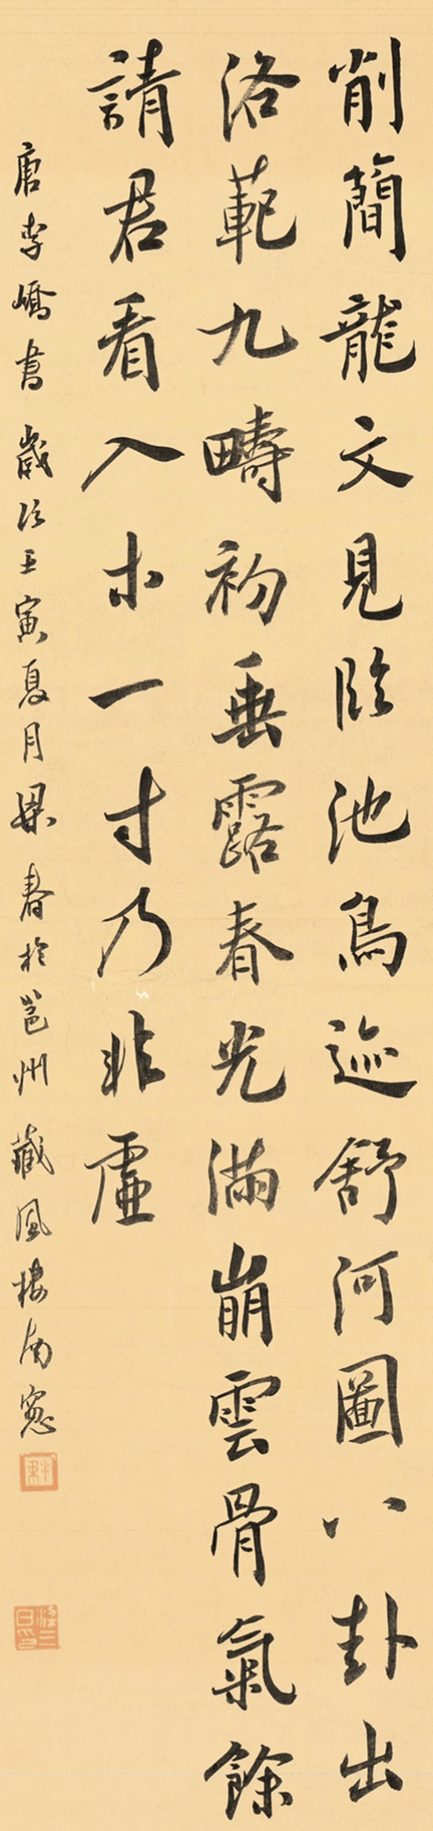 削簡龍文見臨池鳥迹舒河圖八卦出
洛範九疇初垂露春光滿崩雲骨氣餘
請君看入木一寸乃非虛
唐李嶠書 歲次壬寅夏月畢春於邕州藏風樓南窗